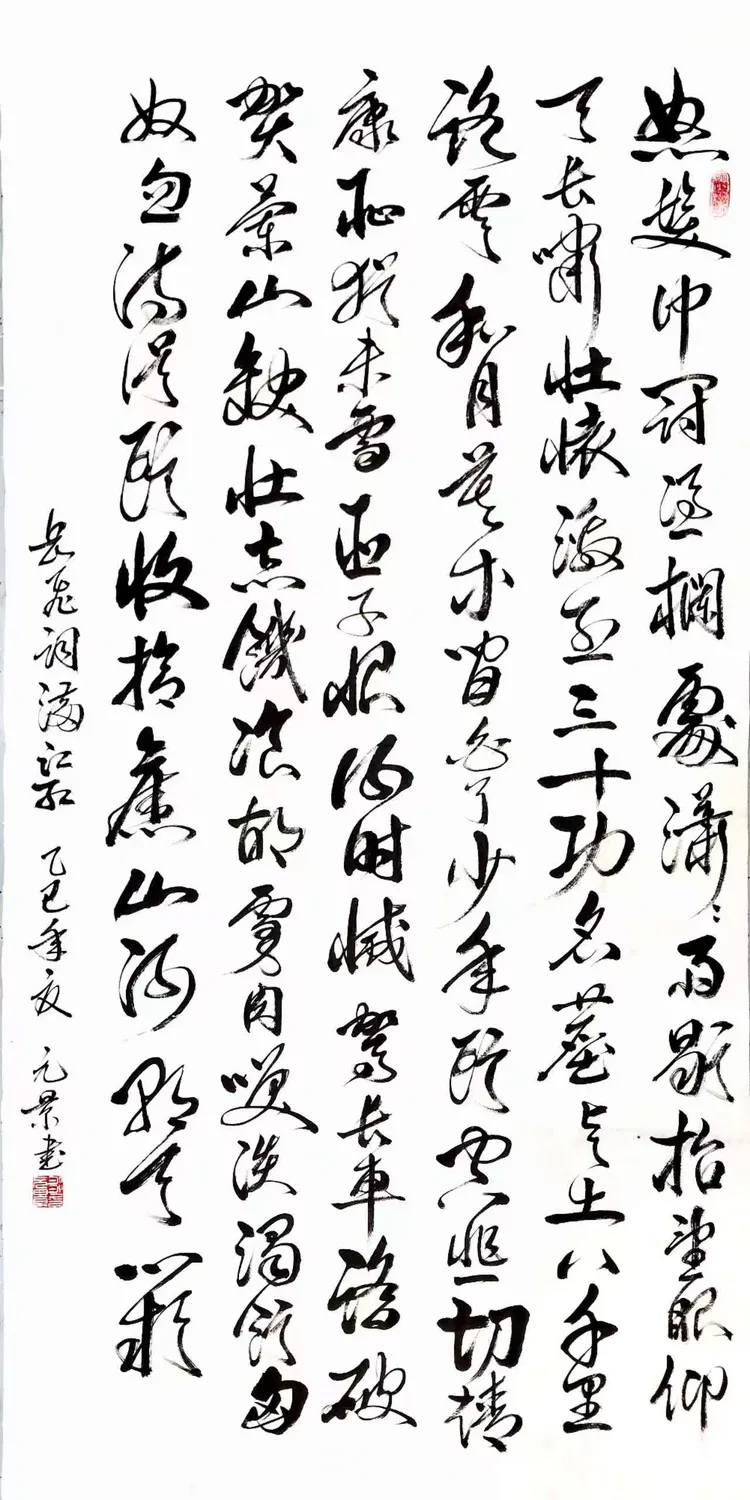 怒髮冲冠憑欄處瀟〻雨歇抬望眼仰
天長嘯壯懷激烈三十功名塵與土八千里
路雲和月莫等閒白了少年頭空悲切靖
康恥猶未雪臣子恨何時憾駕長車踏破
賀蘭山缺壯志饑飡胡虜肉笑談渴飲匈
奴血待從頭收拾舊山河朝天闕
岳飛詞滿江紅 乙巳年夏 元景書